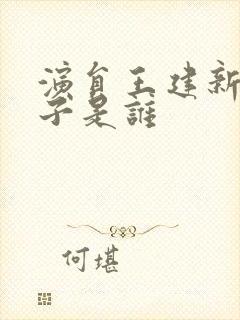 演員王建新
子是誰
何堪